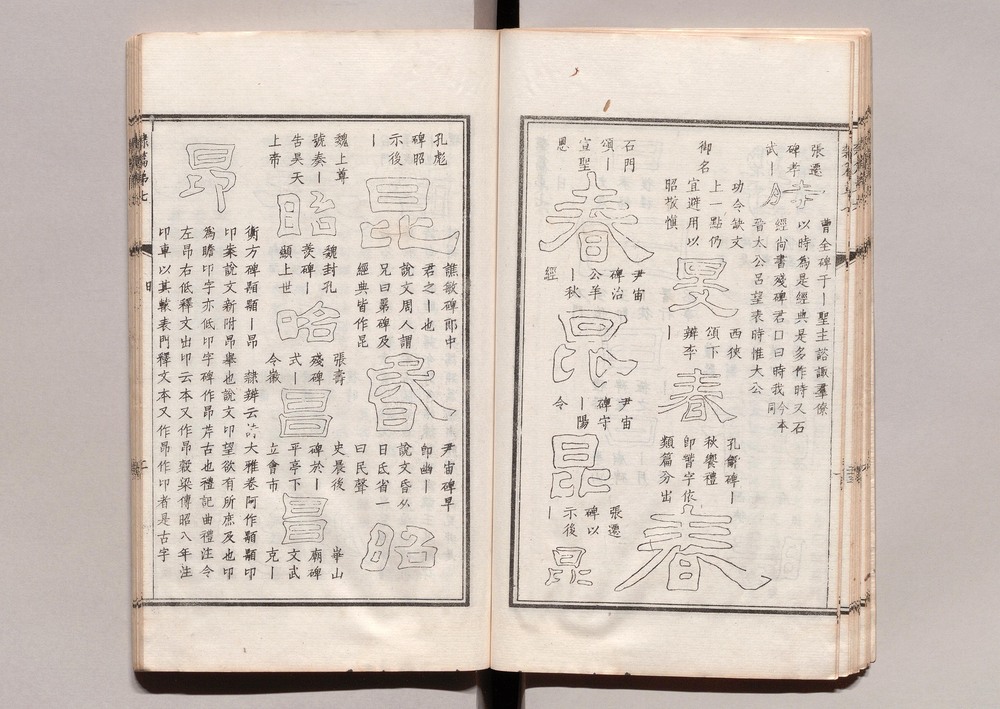 張遷
碑孝
武丨
曹全碑于丨聖主諮諏羣僚
以時為是經典是多作時又石
經尚書殘碑君口曰時我今本
晉太公呂望表時惟大公
御名
功令缺文
上一點仍
宜避用以
昭敬慎
西狹
頌下
辨李
丨
春
孔龢碑丨
秋饗禮
即簪字依
類篇分出
春
石門
頌丨
宣聖
恩
春
尹宙
碑治
公羊
丨秋
經
昆
尹宙
碑守
丨陽
令
昆
張遷
碑以
示後
丨
昆
孔彪
碑昭
示後
丨
昆
譙敏碑郎中
君之丨也
說文周人謂
兄曰罤碑及
經典皆作昆
昏
尹宙碑早
卽幽丨
說文昏从
日氐省一
曰民聲
昭
魏上尊
號奏丨
告昊天
上帝
昭
魏封孔
羨碑丨
顯上世
昭
張壽
殘碑
式丨
令徽
昌
史晨後
碑於丨
平亭下
立會市
昌
華山
廟碑
文武
克丨
昂
衡方碑顒顒丨昂 隸辨云詩大雅卷阿作顒顒印
印案說文新附昂舉也說文印望欲有所庶及也印
為瞻印字亦低印字碑作昂芹古也禮記曲禮注令
左昂右低釋文出印云本又作昂穀梁傳昭八年注
印車以其軟表門釋文本又作昂作印者是古字